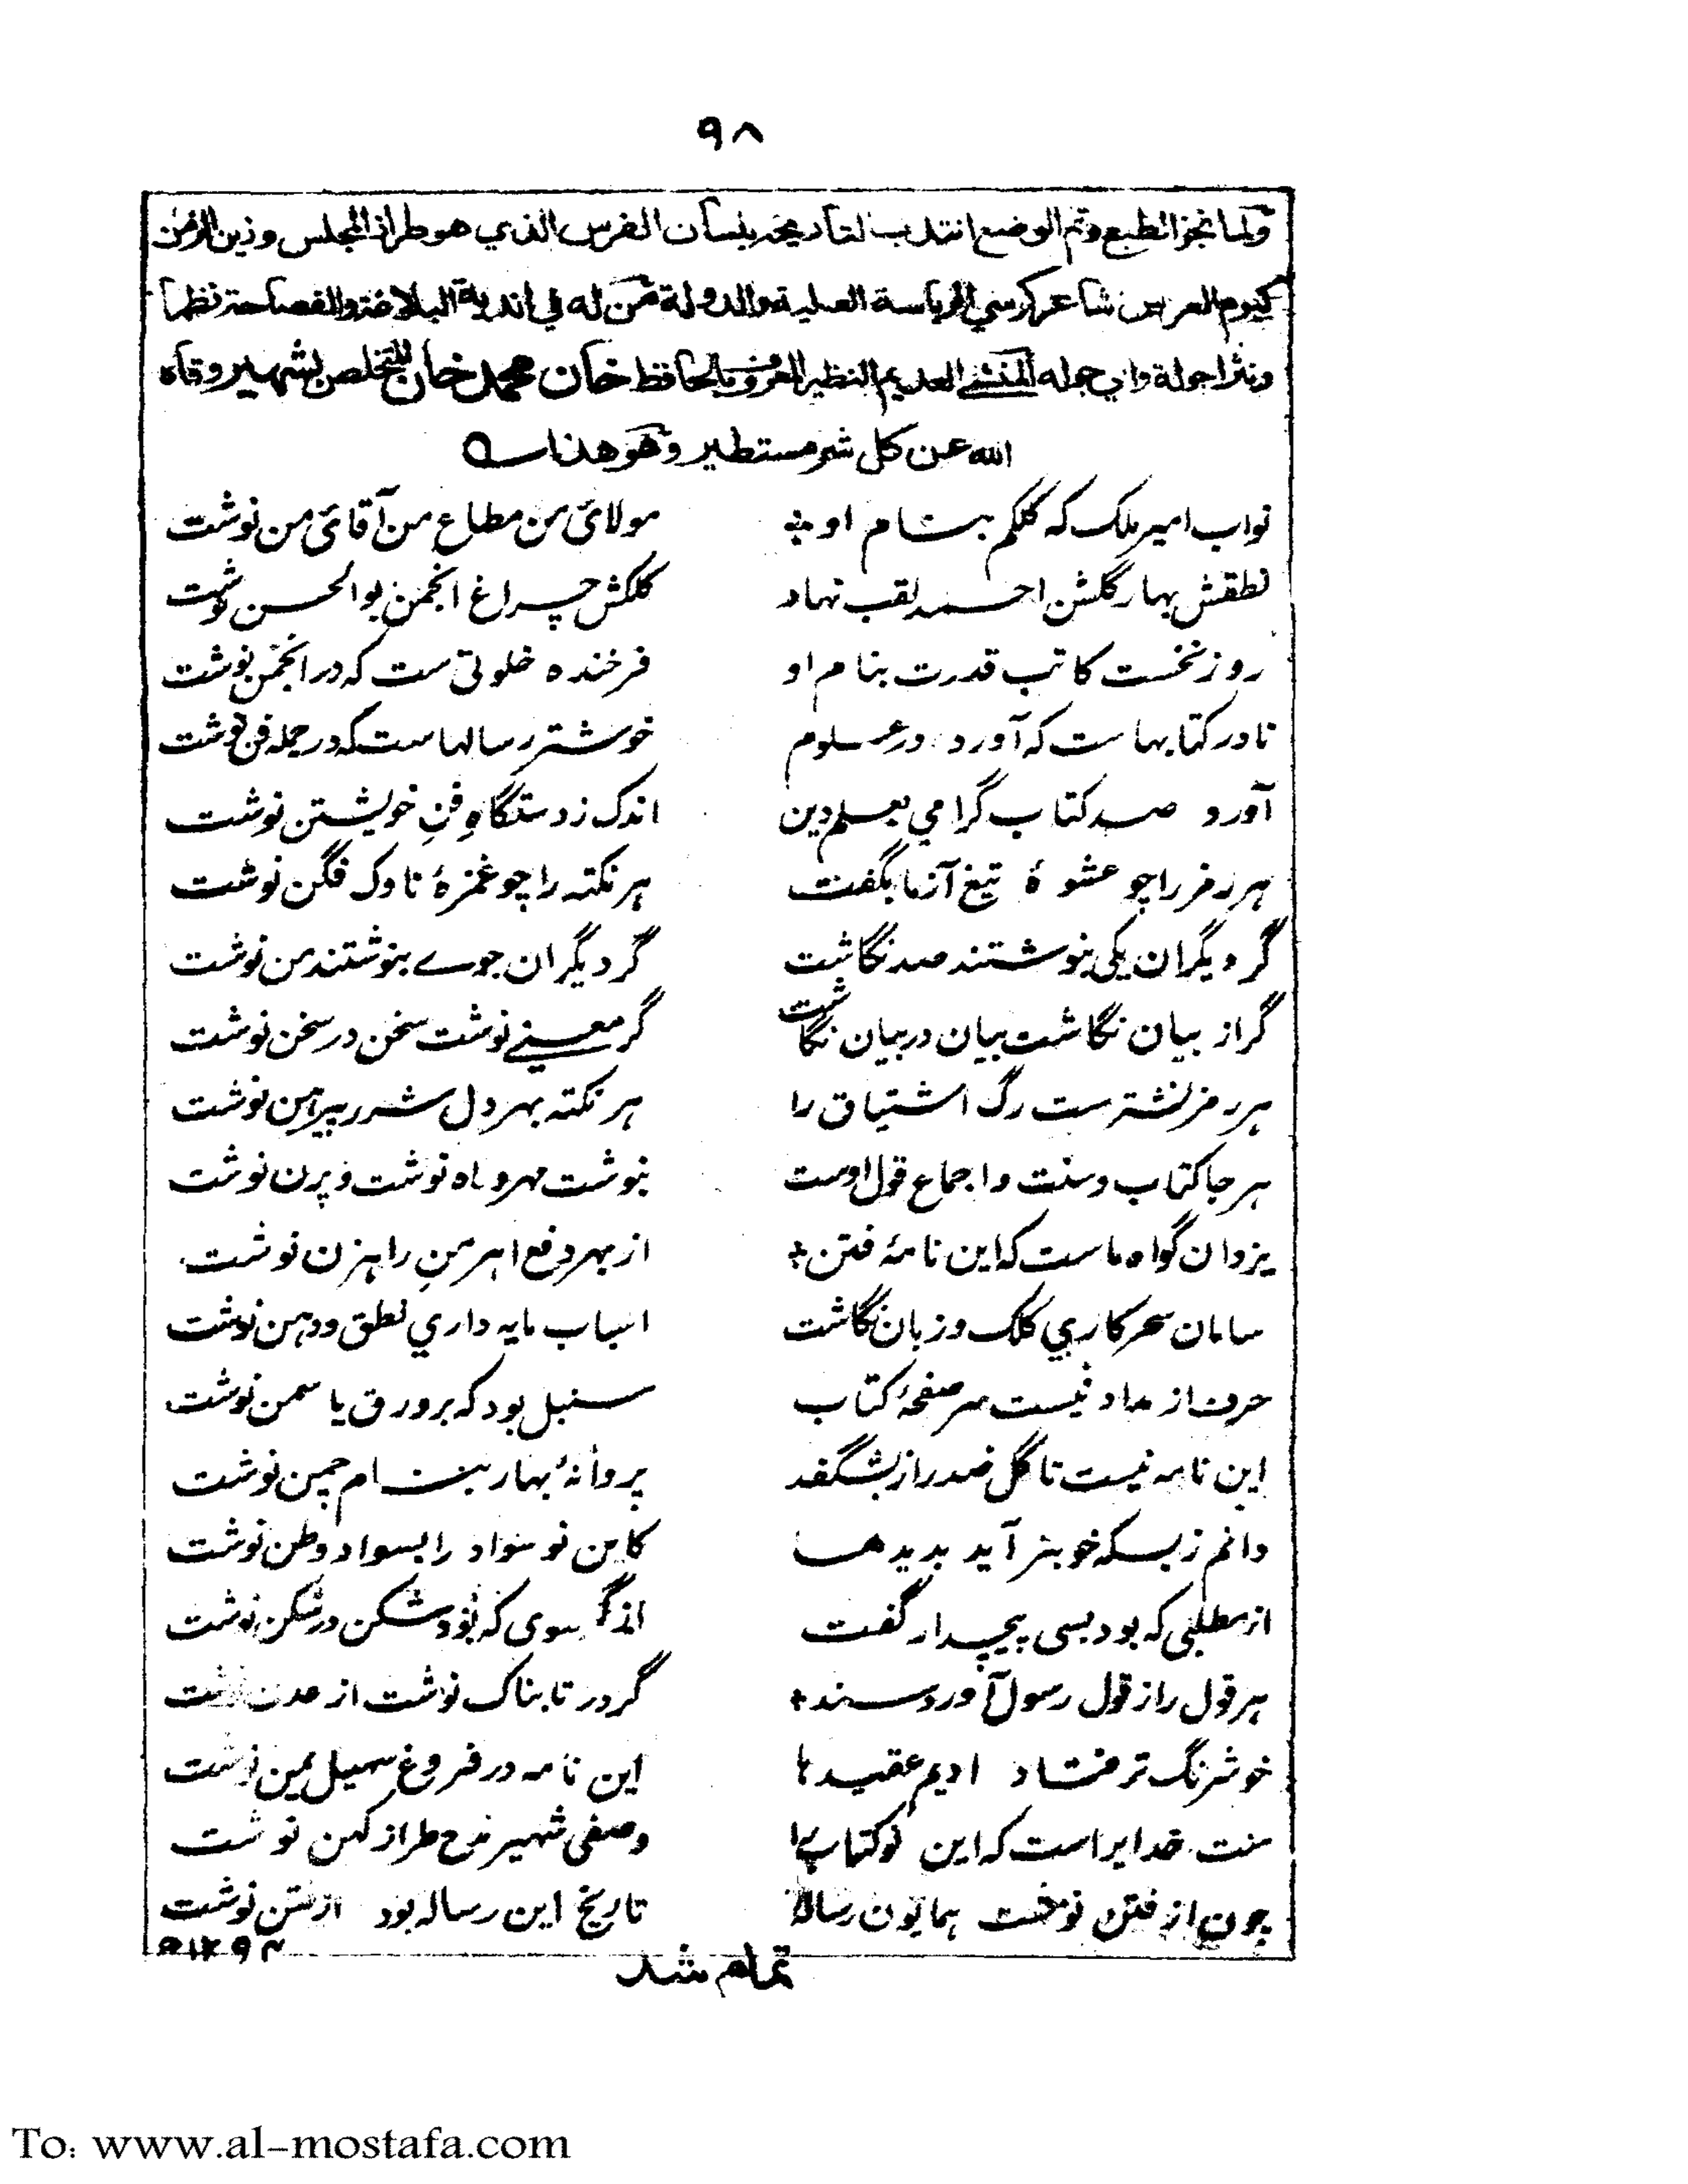 ٩٨
ولما نجز الطبع وتم الوضع انتدب لتاريخه بلسان الفرس الذي هو طراز المجلس وزين الزمن
كيوم العرس شاعر كرسي الرياسة العلية والدولة ممن له في اندية البلاغة والفصاحة نظما
ونثرا جولة واي جولة المنشي العديم النظير المعروف بالحافظ خان محمد خان المتخلص بشهير وقاه
الله عن كل شر مستطير وهو هذا
نواب امیر ملک که کلکم بنام او مولائی من مطاع من آقائی من نوشت
نطقش بهار گلشن احمد لقب نهاد کلکش چراغ انجمن بوالحسن نوشت
روز نخست کاتب قدرت بنام او فرخنده خلوتی ست که در انجمن نوشت
نادر کتابهاست که آورد در علوم خوشتر رسالهاست که در جمله فن نوشت
آورد صد کتاب گرامي بعلم دین اندک ز دستگاهِ فنِ خویشتن نوشت
هر رمز را چو عشوۀ تیغ آزما بگفت هر نکته را چو غمزۀ ناوک فگن نوشت
گر دیگران یکی بنوشتند صد نگاشت گر دیگران جوے بنوشتند من نوشت
گر از بیان نگاشت بیان در بیان نگاشت گر معنے نوشت سخن در سخن نوشت
هر رمز نشترست رگ اشتیاق را هر نکته بهر دل شرر پیراهن نوشت
هر جا کتاب و سنت و اجماع قول اوست بنوشت مهر و ماه نوشت و پرن نوشت
یزدان گواه ماست که این نامۀ فتن از بهر دفع اهرمنِ راهزن نوشت
سامان سحر کاري کلک و زبان نگاشت اسباب مایه داري نطق و دهن نوشت
حرف از مداد نیست سر صفحۀ کتاب سنبل بود که بر ورق یاسمن نوشت
این نامه نیست تا گل صد راز بشگفد پروانۀ بهار بنام چمن نوشت
دانم ز بسکه خوبتر آید بدیدها کاین نو سواد را بسواد وطن نوشت
از مطلبی که بود بسی پیچدار گفت از گیسوی که بود شکن در شکن نوشت
هر قول را ز قول رسول آورد سند گر در تابناک نوشت از عدن نوشت
خوشرنگ تر فتاد ادیم عقیدها این نامه در فروغ سهیل یمن نوشت
منت خدایراست که این نو کتاب را وصفی شهیر مدح طراز کهن نوشت
چون از فتن نوشت همایون رسالۀ تاریخ این رساله بود از فتن نوشت
١٢٩٤
تمام شد
To: www.al-mostafa.com